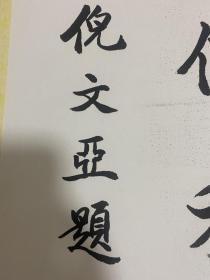 倪文亞題